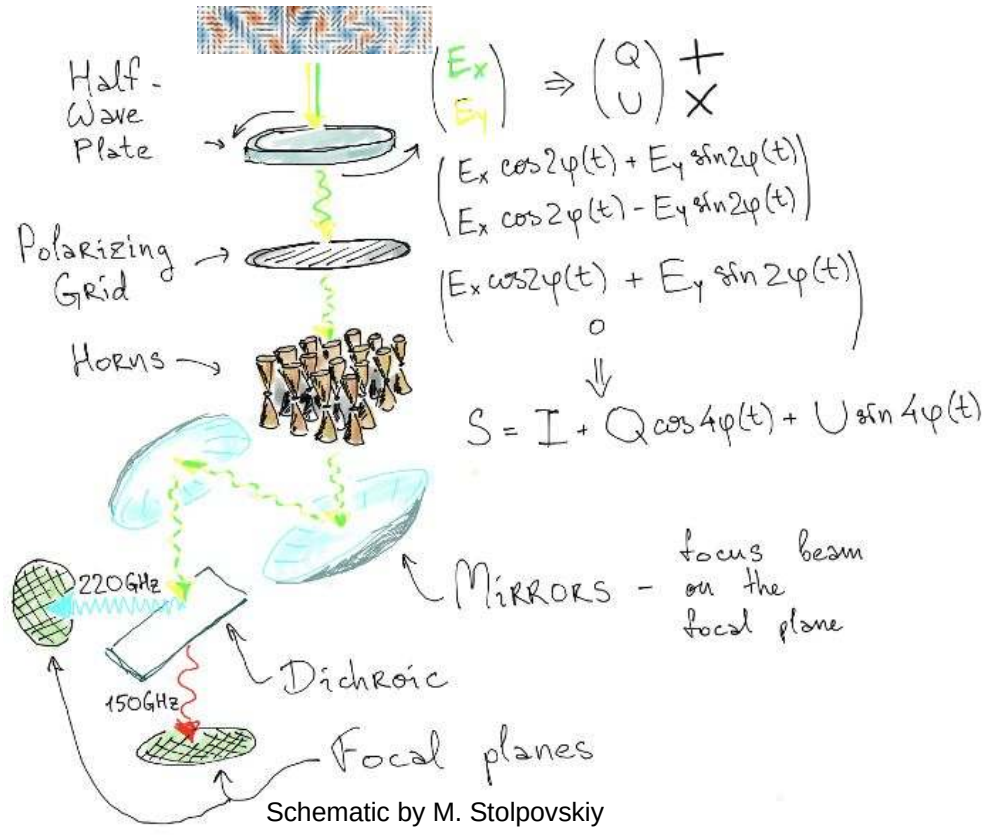 Half-
Wave
Plate
(Ex
Ey) ⇒ (Q
U) + ×
(Ex cos2φ(t) + Ey sin2φ(t)
Ex cos2φ(t) - Ey sin2φ(t))
Polarizing
Grid
(Ex cos2φ(t) + Ey sin2φ(t)
0)
⇓
Horns
S = I + Q cos4φ(t) + U sin4φ(t)
Mirrors - focus beam
on the
focal plane
220GHz
Dichroic
150GHz
Focal planes
Schematic by M. Stolpovskiy